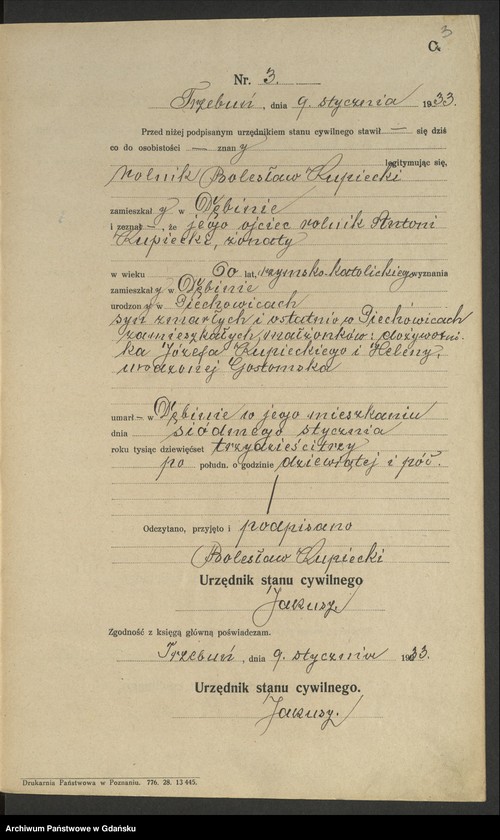 3
C.
Nr. 3.
Trzebuń, dnia 9. stycznia 1933.
Przed niżej podpisanym urzędnikiem stanu cywilnego stawił — się dziś
co do osobistości — znany
legitymując się,
rolnik Bolesław Kupiecki
zamieszkały w Dębinie
i zeznał —, że jego ojciec rolnik Antoni
Kupiecki, żonaty
w wieku 60 lat, rzymsko-katolickiego wyznania
zamieszkały w Dębinie
urodzony w Piechowicach
syn zmarłych i ostatnio w Piechowicach
zamieszkałych małżonków: dożywotni-
ka Józefa Kupieckiego i Heleny,
urodzonej Gostomska
umarł — w Dębinie w jego mieszkaniu
dnia siódmego stycznia
roku tysiąc dziewięćset trzydzieści trzy
po połudn. o godzinie dziewiątej i pół.
Odczytano, przyjęto i podpisano
Bolesław Kupiecki
Urzędnik stanu cywilnego
Jakusz
Zgodność z księgą główną poświadczam.
Trzebuń, dnia 9. stycznia 1933.
Urzędnik stanu cywilnego.
Jakusz.
Drukarnia Państwowa w Poznaniu. 776. 28. 13 445.
Archiwum Państwowe w Gdańsku